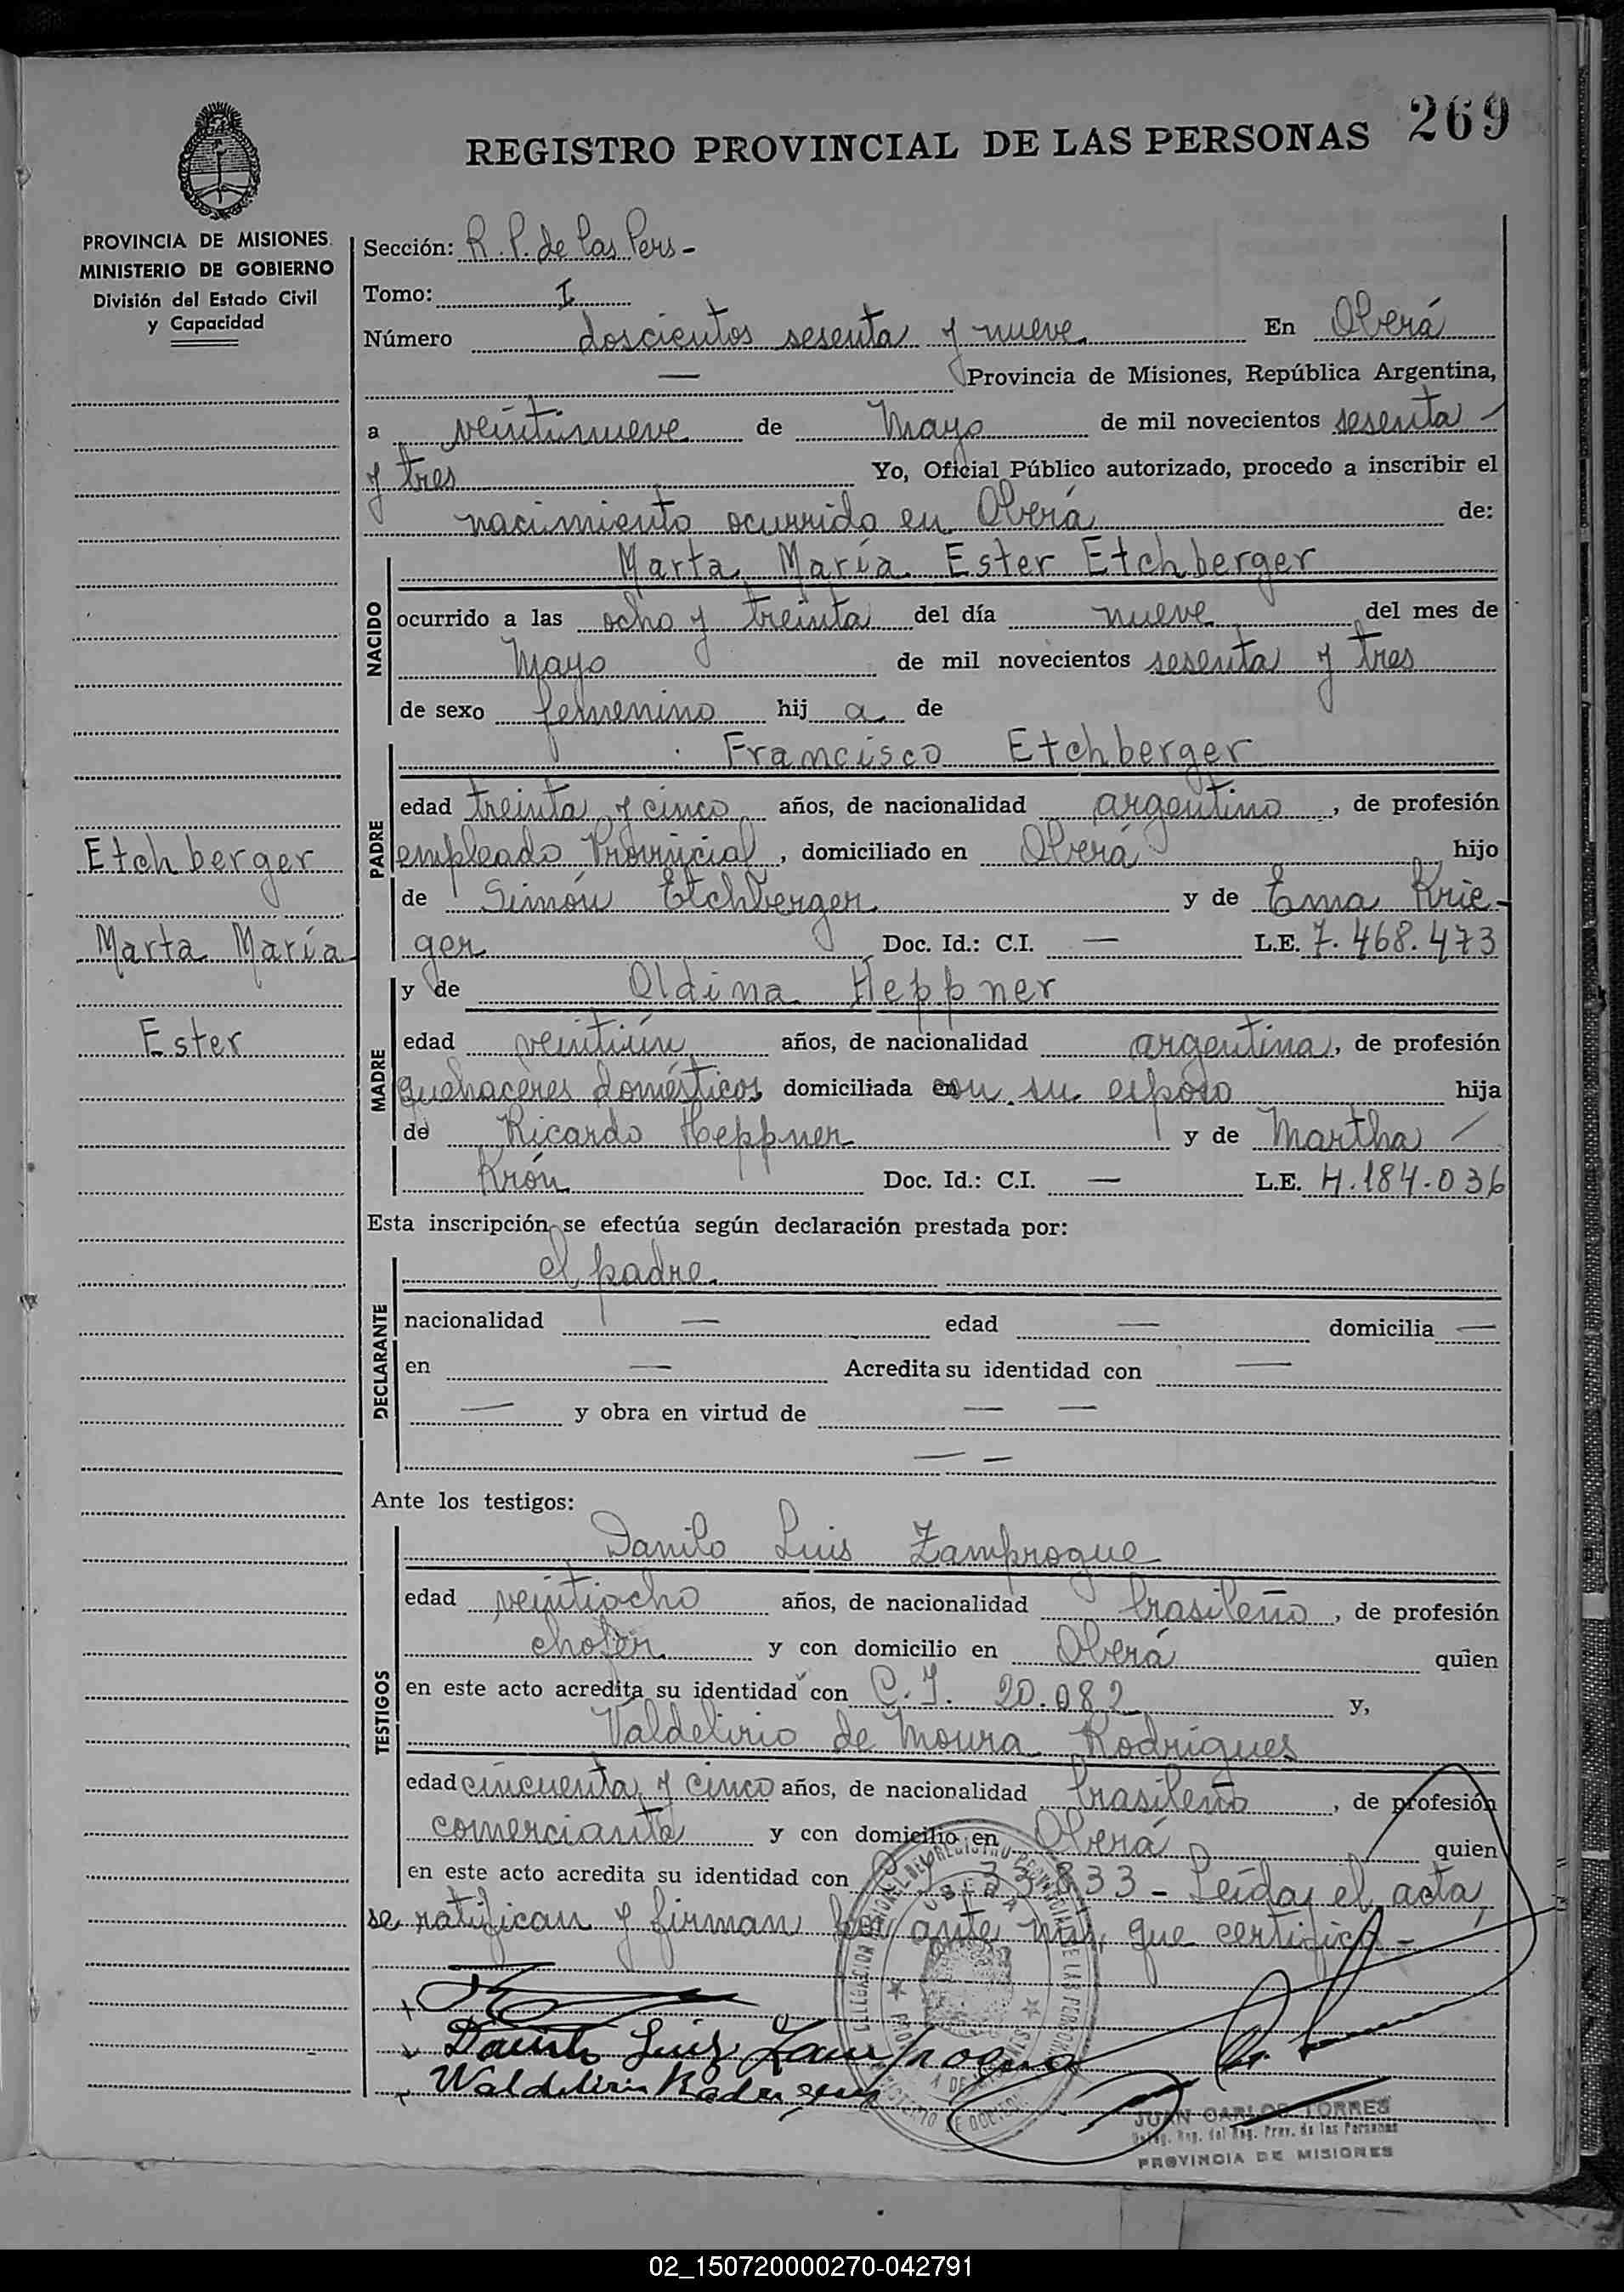 269
REGISTRO PROVINCIAL DE LAS PERSONAS
PROVINCIA DE MISIONES
MINISTERIO DE GOBIERNO
División del Estado Civil
y Capacidad
Etchberger
Marta María
Ester
Sección: R. P. de las Pers -
Tomo: I
Número doscientos sesenta y nueve En Oberá
— Provincia de Misiones, República Argentina,
a veintinueve de Mayo de mil novecientos sesenta
y tres Yo, Oficial Público autorizado, procedo a inscribir el
nacimiento ocurrido en Oberá de:
NACIDO
Marta María Ester Etchberger
ocurrido a las ocho y treinta del día nueve del mes de
Mayo de mil novecientos sesenta y tres
de sexo femenino hij a de
PADRE
Francisco Etchberger
edad treinta y cinco años, de nacionalidad argentino, de profesión
empleado Provincial, domiciliado en Oberá hijo
de Simón Etchberger y de Ema Krie-
ger Doc. Id.: C.I. — L.E. 7.468.473
MADRE
y de Oldina Heppner
edad veintiún años, de nacionalidad argentina, de profesión
quehaceres domésticos domiciliada con su esposo hija
de Ricardo Heppner y de Martha
Krón Doc. Id.: C.I. — L.E. 4.184.036
Esta inscripción se efectúa según declaración prestada por:
DECLARANTE
el padre
nacionalidad — edad — domicilia —
en — Acredita su identidad con —
— y obra en virtud de — —
— —
Ante los testigos:
TESTIGOS
Danilo Luis Zamprogne
edad veintiocho años, de nacionalidad brasileño, de profesión
chofer y con domicilio en Oberá quien
en este acto acredita su identidad con C.I. 20.082 y,
Valdelirio de Moura Rodrigues
edad cincuenta y cinco años, de nacionalidad brasileño, de profesión
comerciante y con domicilio en Oberá quien
en este acto acredita su identidad con 33.833 - Leída el acta,
se ratifican y firman por ante mí, que certifico -
Danilo Luiz Zamprogno
Waldelirio Rodrigues
JUAN CARLOS TORRES
Deleg. Reg. del Reg. Prov. de las Personas
PROVINCIA DE MISIONES
02_150720000270-042791